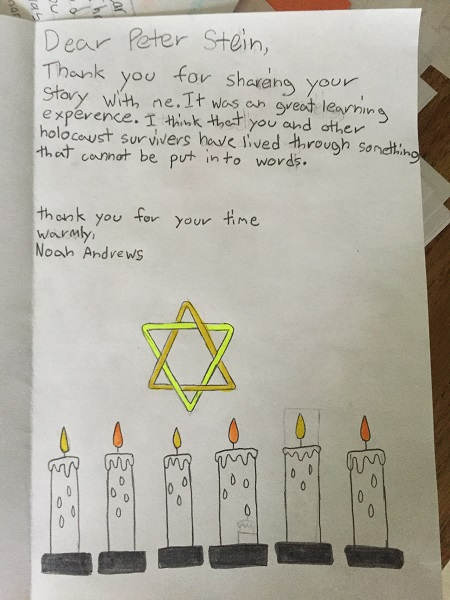 Dear Peter Stein,
Thank you for shareing your
Story with me. It was an great learning
experence. I think that you and other
holocaust survivers have lived through something
that cannot be put in to words.
thank you for your time
warmly,
Noah Andrews